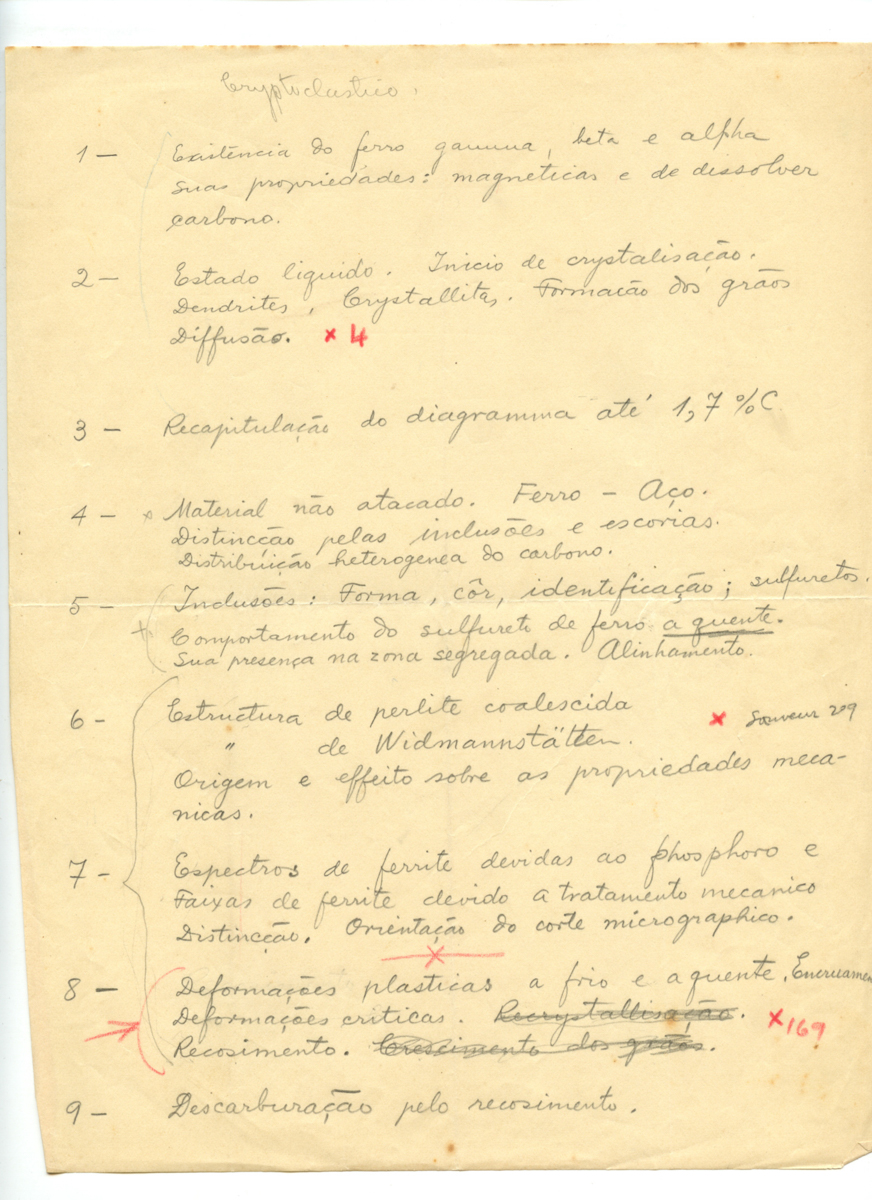 Cryptoclastico.
1 — Existência do ferro gamma, beta e alpha
suas propriedades: magneticas e de dissolver
carbono.
2 — Estado liquido. Inicio de crystalisação.
Dendrites, Crystallitas. Formação dos grãos
Diffusão. x 4
3 — Recapitulação do diagramma até 1,7 % C
4 — x Material não atacado. Ferro - Aço.
Distincção pelas inclusões e escorias.
Distribuição heterogenea do carbono.
5 — Inclusões: Forma, côr, identificação; sulfuretos.
+ Comportamento do sulfureto de ferro a quente.
Sua presença na zona segregada. Alinhamento.
6 - Estructura de perlite coalescida
x Sauveur 209
" de Widmannstätten.
Origem e effeito sobre as propriedades meca-
nicas.
7 - Espectros de ferrite devidas ao phosphoro e
Faixas de ferrite devido a tratamento mecanico
Distincção. Orientação do corte micrographico.
x
8 — Deformações plasticas a frio e a quente. Encruamen
Deformações criticas. Recrystallisação. x 169
Recosimento. Crescimento dos grãos.
9 - Descarburação pelo recosimento.